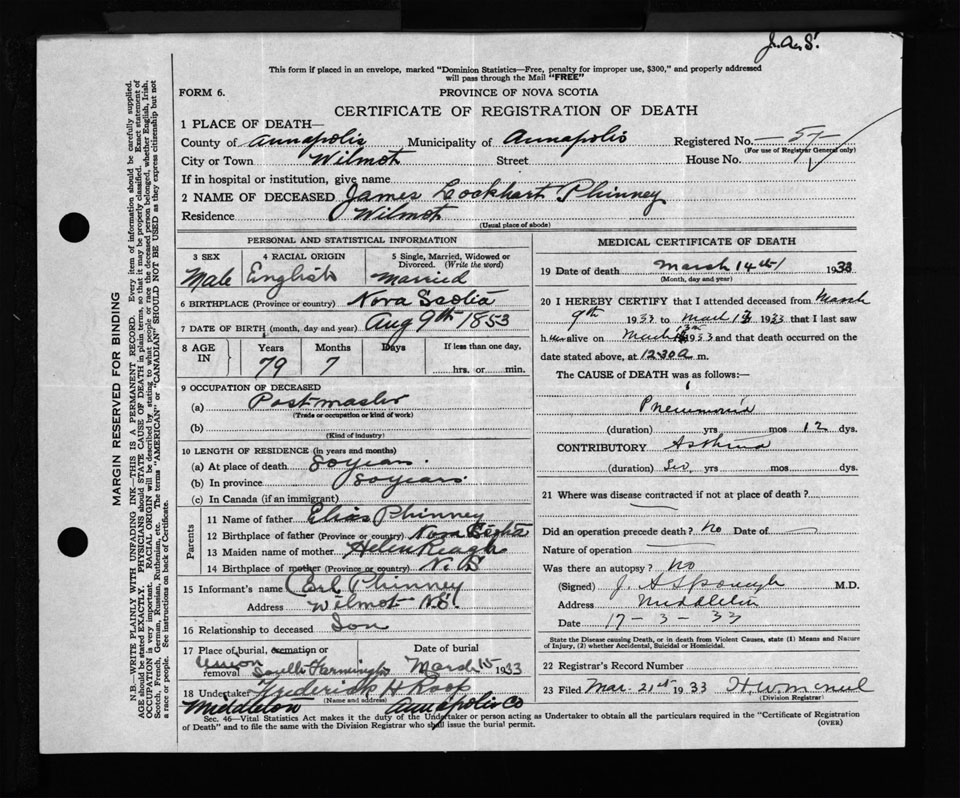 J.A.S.
This form if placed in an envelope, marked "Dominion Statistics—Free, penalty for improper use, $300," and properly addressed
will pass through the Mail "FREE"
FORM 6.
PROVINCE OF NOVA SCOTIA
CERTIFICATE OF REGISTRATION OF DEATH
1 PLACE OF DEATH—
County of Annapolis Municipality of Annapolis Registered No. 57
(For use of Registrar General only)
City or Town Wilmot Street House No.
If in hospital or institution, give name
2 NAME OF DECEASED James Lockhart Phinney
Residence Wilmot
(Usual place of abode)
PERSONAL AND STATISTICAL INFORMATION
3 SEX 4 RACIAL ORIGIN 5 Single, Married, Widowed or
Divorced. (Write the word)
Male English Married
6 BIRTHPLACE (Province or country) Nova Scotia
7 DATE OF BIRTH (month, day and year) Aug 9th 1853
8 AGE IN Years Months Days If less than one day,
79 7 hrs. or min.
9 OCCUPATION OF DECEASED
(a) Postmaster
(Trade or occupation or kind of work)
(b)
(Kind of industry)
10 LENGTH OF RESIDENCE (in years and months)
(a) At place of death 80 years
(b) In province 80 years
(c) In Canada (if an immigrant)
Parents
11 Name of father Elias Phinney
12 Birthplace of father (Province or country) Nova Scotia
13 Maiden name of mother Helen Reagh
14 Birthplace of mother (Province or country) N. S
15 Informant's name Carl Phinney
Address Wilmot N.S.
16 Relationship to deceased Son
17 Place of burial, cremation or Date of burial
removal March 15 1933
18 Undertaker Frederick H Roop
(Name and address)
Middleton Annapolis Co
MEDICAL CERTIFICATE OF DEATH
19 Date of death March 14th 1933
(Month, day and year)
20 I HEREBY CERTIFY that I attended deceased from March
9th 1933 to March 13 1933 that I last saw
h im alive on March 13th 1933 and that death occurred on the
date stated above, at 12.30 a m.
The CAUSE of DEATH was as follows:—
Pneumonia
(duration) yrs mos 12 dys.
CONTRIBUTORY Asthma
(duration) yrs mos dys.
21 Where was disease contracted if not at place of death?
Did an operation precede death? No Date of
Nature of operation
Was there an autopsy? No
(Signed) J. A. M.D.
Address Middleton
Date 17-3-33
State the Disease causing Death, or in death from Violent Causes, state (1) Means and Nature
of Injury, (2) whether Accidental, Suicidal or Homicidal.
22 Registrar's Record Number
23 Filed Mar. 21st 1933 H. W.
(Division Registrar)
Sec. 46—Vital Statistics Act makes it the duty of the Undertaker or person acting as Undertaker to obtain all the particulars required in the "Certificate of Registration
of Death" and to file the same with the Division Registrar who shall issue the burial permit. (OVER)
MARGIN RESERVED FOR BINDING
N.B.—WRITE PLAINLY WITH UNFADING INK—THIS IS A PERMANENT RECORD. Every item of information should be carefully supplied.
AGE should be stated EXACTLY. PHYSICIANS should STATE CAUSE OF DEATH in plain terms, so that it may be properly classified. Exact statement of
OCCUPATION is very important. RACIAL ORIGIN will be described by stating to what people or race the deceased person belonged, whether English, Irish,
Scotch, French, German, Russian, Ruthenian, etc. The terms "AMERICAN" or "CANADIAN" SHOULD NOT BE USED as they express citizenship but not
a race or people. See instructions on back of Certificate.